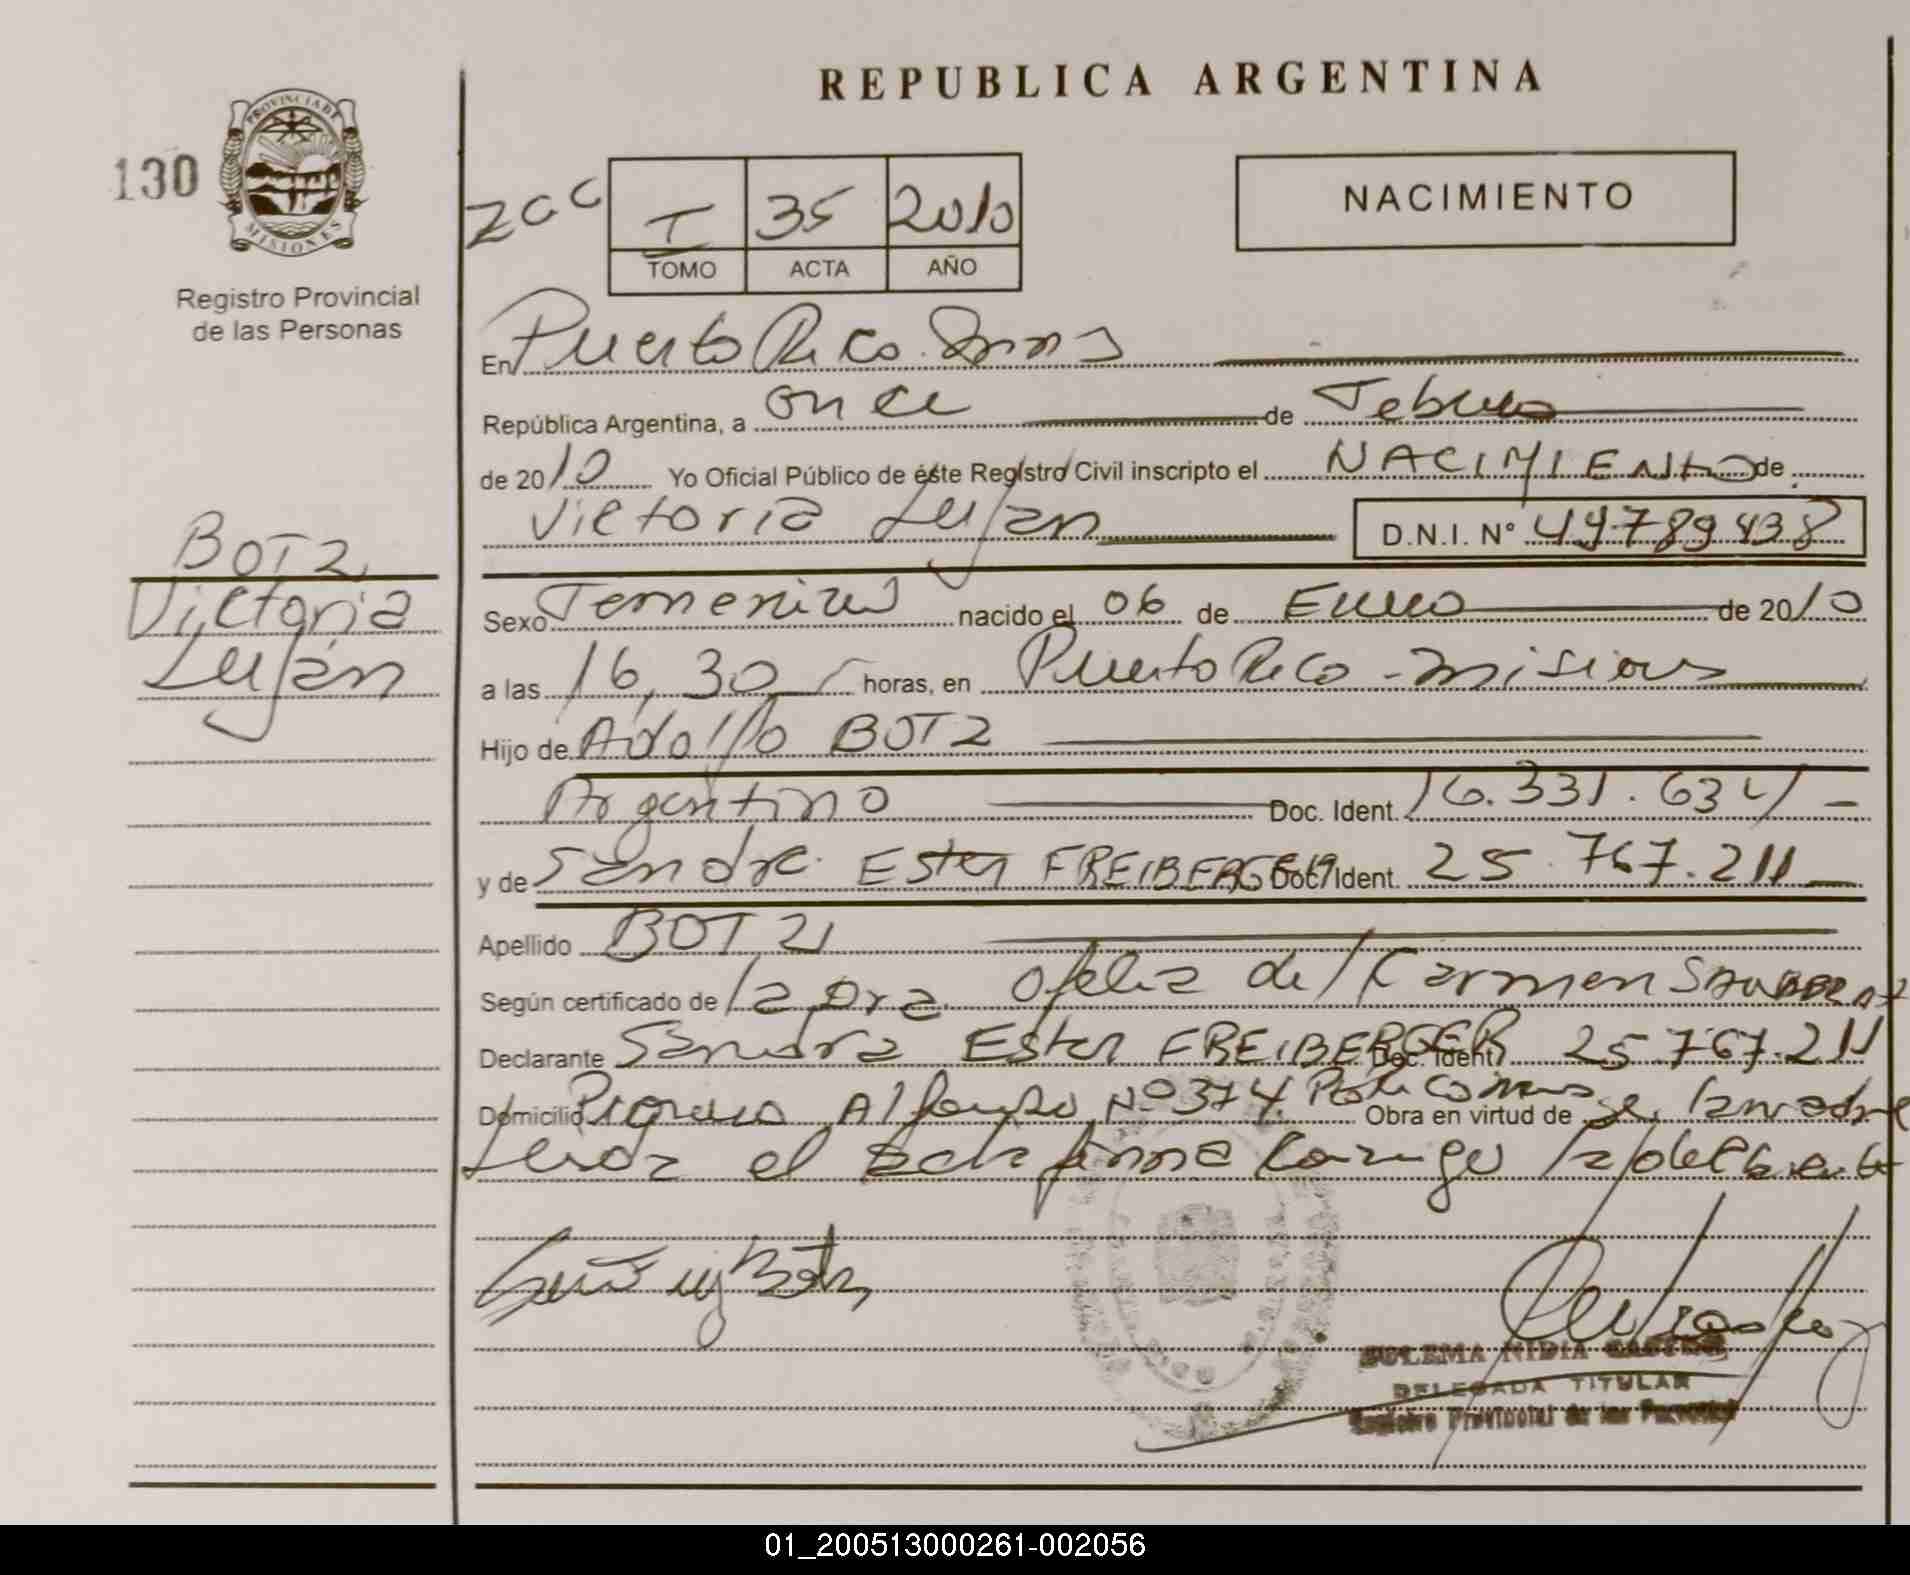 REPUBLICA ARGENTINA
130
PROVINCIA DE
MISIONES
Registro Provincial
de las Personas
T 35 2010
TOMO ACTA AÑO
NACIMIENTO
En Puerto Rico
República Argentina, a once de Febrero
de 2010 Yo Oficial Público de éste Registro Civil inscripto el NACIMIENTO de
Victoria Luján D.N.I. Nº 49.789.438
BOTZ
Victoria
Luján
Sexo Femenino nacido el 06 de Enero de 2010
a las 16,30 horas, en Puerto Rico - Misiones
Hijo de Adolfo BOTZ
Argentino Doc. Ident. 16.331.634
y de Sandra Ester FREIBERGER Doc. Ident. 25.767.211
Apellido BOTZ
Según certificado de la Dra. Ofelia del Carmen
Declarante Sandra Ester FREIBERGER Doc. Ident. 25.767.211
Domicilio Alfonso Nº 374. Obra en virtud de la madre
Leída el acta firma conmigo la declarante
Botz
SULEMA NIDIA CASTRO
DELEGADA TITULAR
Registro Provincial de las Personas
01_200513000261-002056